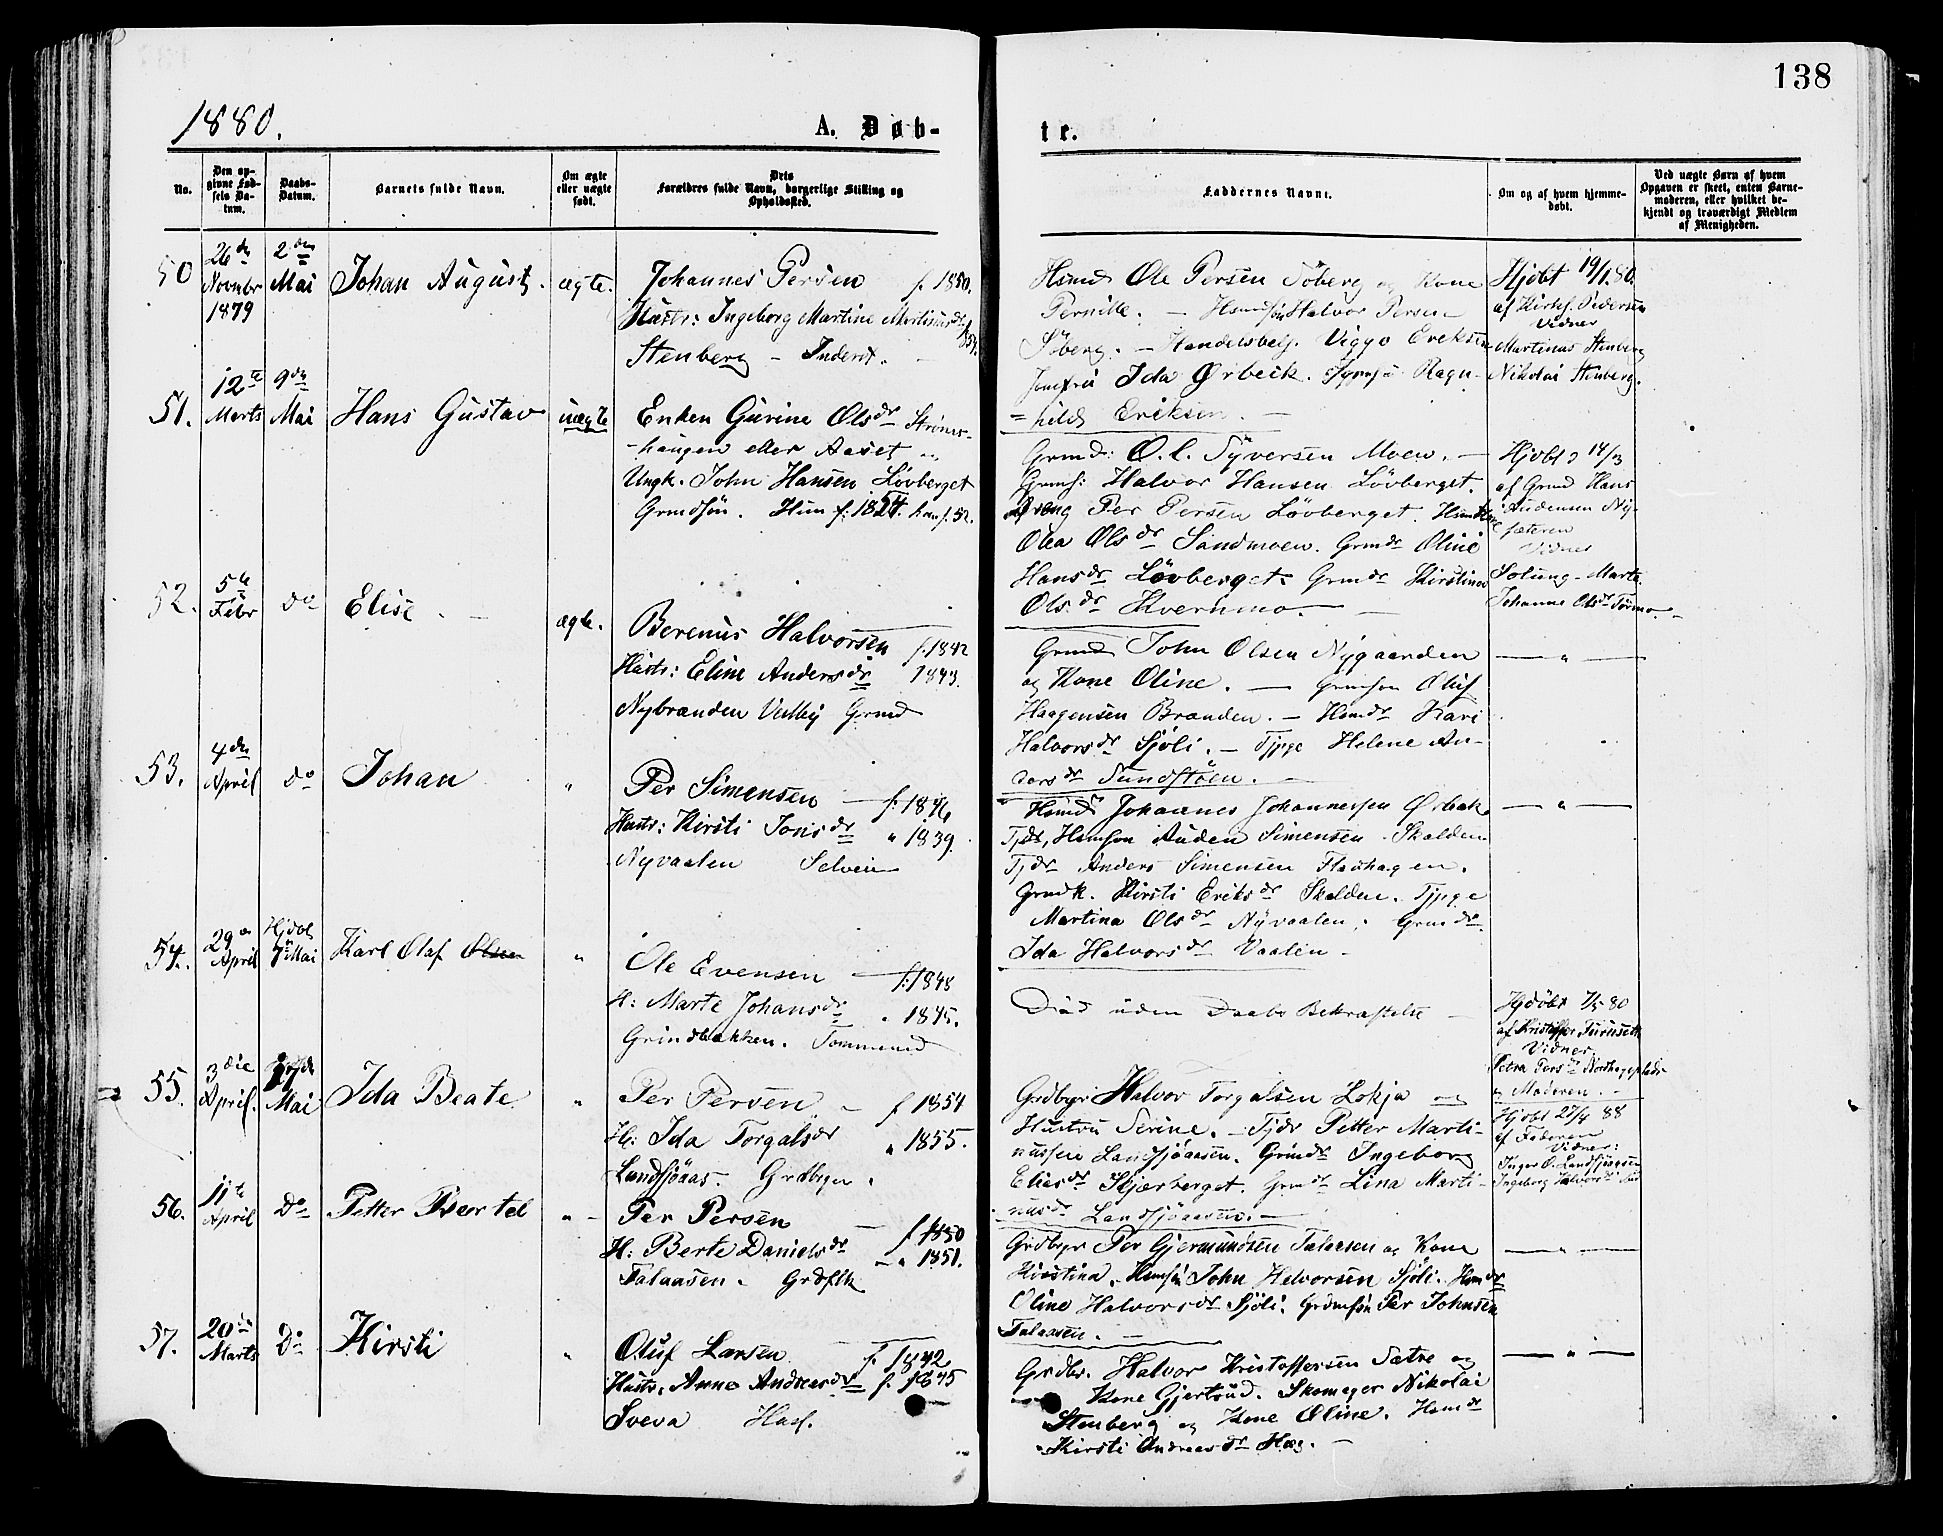 138
1880.
A. Døb-
te.
No.
Den opgivne Fødsels Datum.
Daabs-Datum.
Barnets fulde Navn.
Om ægte eller uægte født.
Dets Forældres fulde Navn, borgerlige Stilling og Opholdssted.
Faddernes Navne.
Om og af hvem hjemmedøbt.
Ved uægte Børn af hvem Opgaven er skeet, enten Barnemoderen, eller hvilket bekjendt og troværdigt Medlem af Menigheden.
50 26de Novmbr 1879 2den Mai Johan August ægte.
Johannes Persen f. 1850.
Hustr: Ingeborg Martine Martinusdr
Stenberg - Inderst.
Hsmd Ole Persen Søberg og Kone
Pernille. - Hsmdsøn Halvor Persen
Søberg. - Handelsbetj. Viggo Eriksen
Jomfru Ida Ørbeck. Ragn-
=hild Eriksen. -
Hjdbt 19/1 80.
af Kirks. Pedersen
Vidner
Martinus Stenberg
Nikolai Stenberg.
51. 12te Marts 9de Mai Hans Gustav uægte
Enken Gurine Olsdr
-haugen eller Aaset og
Ungk. John Hansen Løvberget
Grmdsøn. Hun f: 1824. han f. 52.
Grmd: O. l. Syversen Moen. -
Grms: Halvor Hansen Løvberget.
Dreng Per Persen Løvberget.
Olea Olsdr Sandmoen. Grmdr Oline
Hansdr Løvberget. Grmdr Kirstine
Olsdr Kvernmo. -
Hjdbt d 14/3
af Grmd Hans
Audensen Ny-
sæteren
Vidner
Solung-Marte
Johanne Olsdr
52. 5te Febr do Elise. ægte.
Berenus Halvorsen f. 1842
Hustr: Eline Andersdr 1843.
Nybranden Vestby Grmd
Grmd John Olsen Nygaarden
og Kone Oline. - Grmsøn Oluf
Haagensen Branden. - Hsmdr Kari
Halvorsdr Sjøli. - Tjpge Helene An-
dersdr Sundstøen. -
- " -
53. 4de April do Johan "
Per Simensen - f. 1846
Hustr: Kirsti Jonsdr " 1839.
Nyvaalen Selveier
Hsmd Johannes Johannessen Ørbæk
Tjdr, Hsmsøn Auden Simensen Skalden
Tjdr Anders Simensen Fladhagen.
Grmdk. Kirsti Eriksdr Skalden. Tjpge
Martina Olsdr Nyvaalen. Grmdr
Ida Halvorsdr Vaalen -
- " -
54. 29de April Hjdbt 7de Mai Karl Olaf Olsen "
Ole Evensen - f: 1848
H: Marte Johansdr " 1845.
Grindbakken. Tømmermd
Død uden Daabs Bekræftelse -
Hjdøbt 7/5 80
af Kristoffer Furuseth
Vidner
Petra Persdr
og Moderen.
55. 3die April. 17de Mai Ida Beate "
Per Persen - f 1854
H: Ida Torgalsdr " 1855.
Landsjøaas. Grdbrger.
Grdbgr Halvor Torgalsen Lokja og
Hustru Serine. - Tjdr Petter Marti-
nussen Landsjøaasen. Grmdr Ingeborg
Eliesdr Skjærberget. Grmdr Lina Marti-
nusdr Landsjøaasen. -
Hjdbt 27/4 88
af Faderen
Vidner:
Inger O. Landsjøaasen
Ingeborg Halvorsdr
56. 11te April Do Petter Bertel " -
Per Persen - f 1850
H: Berte Danielsdr - " 1851.
Falaasen. Grdfllk
Grdbgr Per Gjermundsen Falaasen og Kone
Kirstina. Hsmsøn John Halvorsen Sjøli. Hsmdr
Oline Halvorsdr Sjøli. Grdmsøn Per Johnsen
Falaasen. -
- " -
57. 20de Marts Do Kirsti "
Oluf Larsen f. 1842
Hustr. Anne Andreasdr f. 1845
Sveva Husf.
Grdbr. Halvor Kristoffersen Sætre og
Kone Gjertrud. Skomager Nikolai
Stenberg og Kone Oline. Hsmdr
Kirsti Andreasdr Hæg. -
- " -